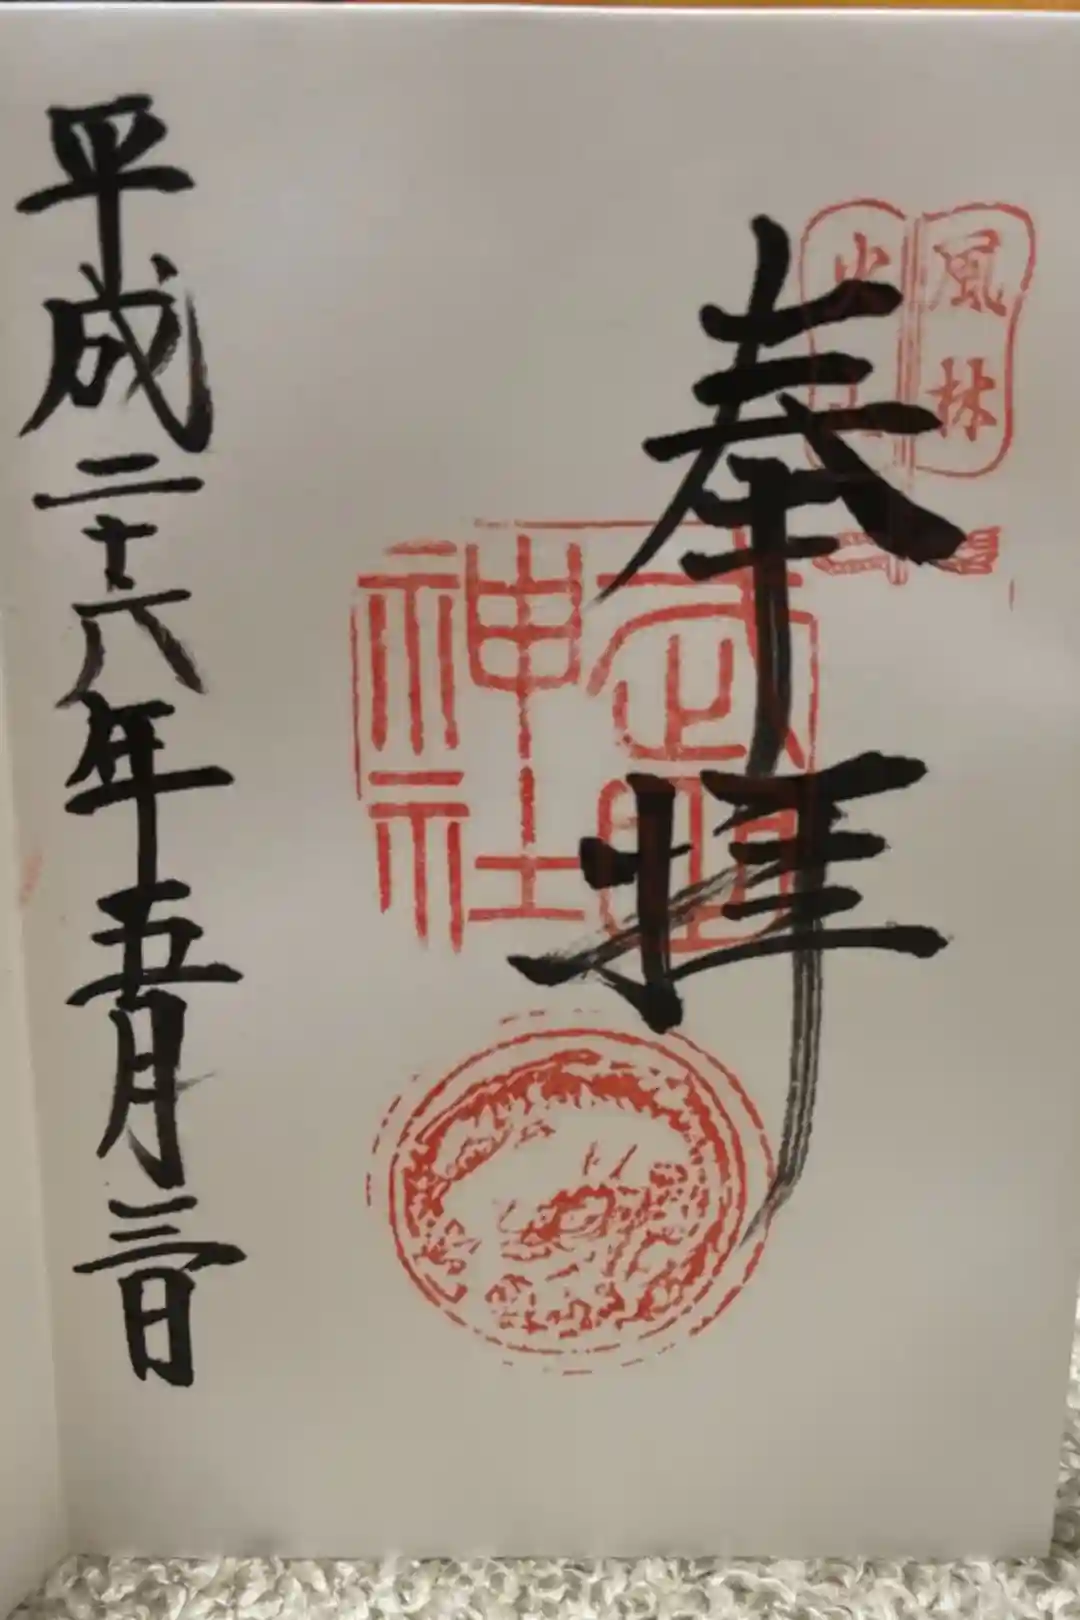 風林
火山
奉拝
武田
神社
平成二十六年五月三日